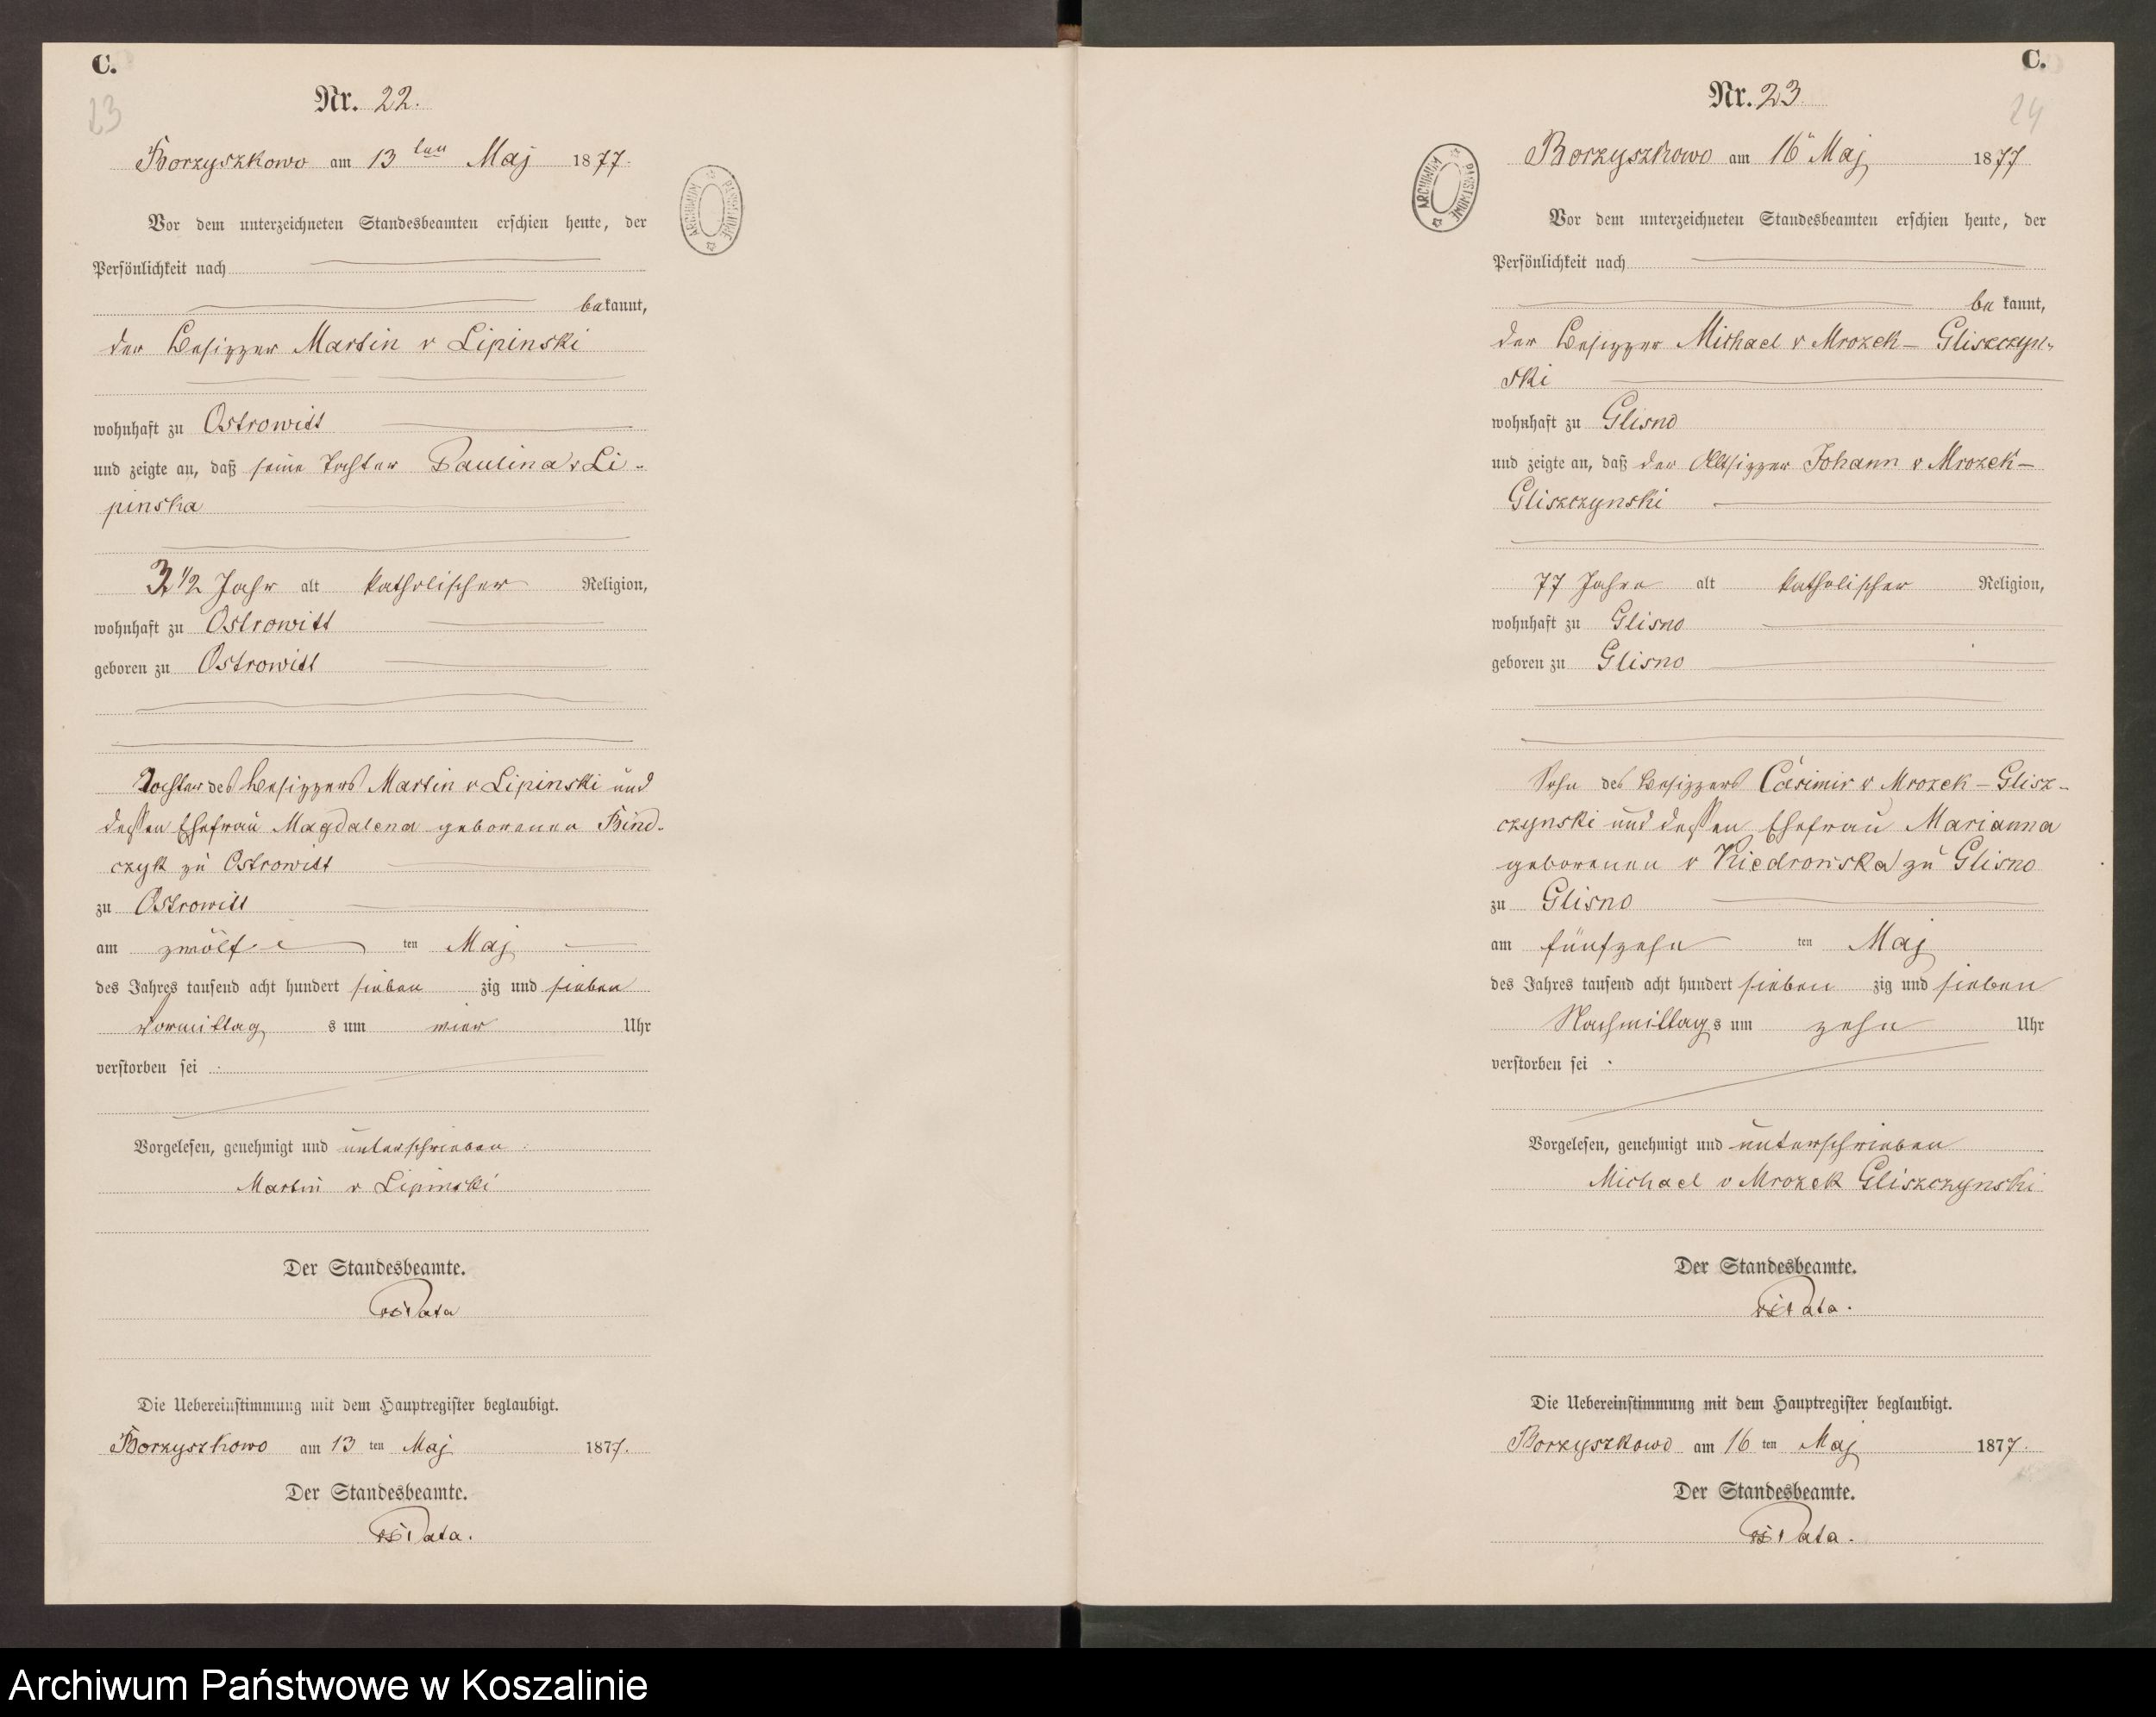 C.
23
Nr. 22.
Borzyszkowo am 13 ten Maj 1877.
Vor dem unterzeichneten Standesbeamten erschien heute, der
Persönlichkeit nach
bekannt,
der Besitzer Martin v Lipinski
wohnhaft zu Ostrowitt
und zeigte an, daß seine Tochter Paulina v Li-
pinska
3 1/2 Jahr alt katholischer Religion,
wohnhaft zu Ostrowitt
geboren zu Ostrowitt
Tochter des Besitzers Martin v Lipinski und
dessen Ehefrau Magdalena geborenen Bind-
czyk zu Ostrowitt
zu Ostrowitt
am zwölf ten Maj
des Jahres tausend acht hundert sieben zig und sieben
Vormittag s um vier Uhr
verstorben sei
Vorgelesen, genehmigt und unterschrieben
Martin v Lipinski
Der Standesbeamte.
Pata
Die Uebereinstimmung mit dem Hauptregister beglaubigt.
Borzyszkowo am 13 ten Maj 1877.
Der Standesbeamte.
Pata.
ARCHIWUM PAŃSTWOWE
C.
24
Nr. 23
Borzyszkowo am 16 Maj 1877
Vor dem unterzeichneten Standesbeamten erschien heute, der
Persönlichkeit nach
be kannt,
der Besitzer Michael v Mrozek - Gliszczyn-
ski
wohnhaft zu Glisno
und zeigte an, daß der Altsitzer Johann v Mrozek -
Gliszczynski
77 Jahre alt katholischer Religion,
wohnhaft zu Glisno
geboren zu Glisno
Sohn des Besitzers Casimir v Mrozek - Glisz-
czynski und dessen Ehefrau Marianna
geborenen v Kiedrowska zu Glisno
zu Glisno
am fünfzehn ten Maj
des Jahres tausend acht hundert sieben zig und sieben
Nachmittag s um zehn Uhr
verstorben sei
Vorgelesen, genehmigt und unterschrieben
Michael v Mrozek Gliszczynski
Der Standesbeamte.
Pata.
Die Uebereinstimmung mit dem Hauptregister beglaubigt.
Borzyszkowo am 16 ten Maj 1877.
Der Standesbeamte.
Pata.
ARCHIWUM PAŃSTWOWE
Archiwum Państwowe w Koszalinie